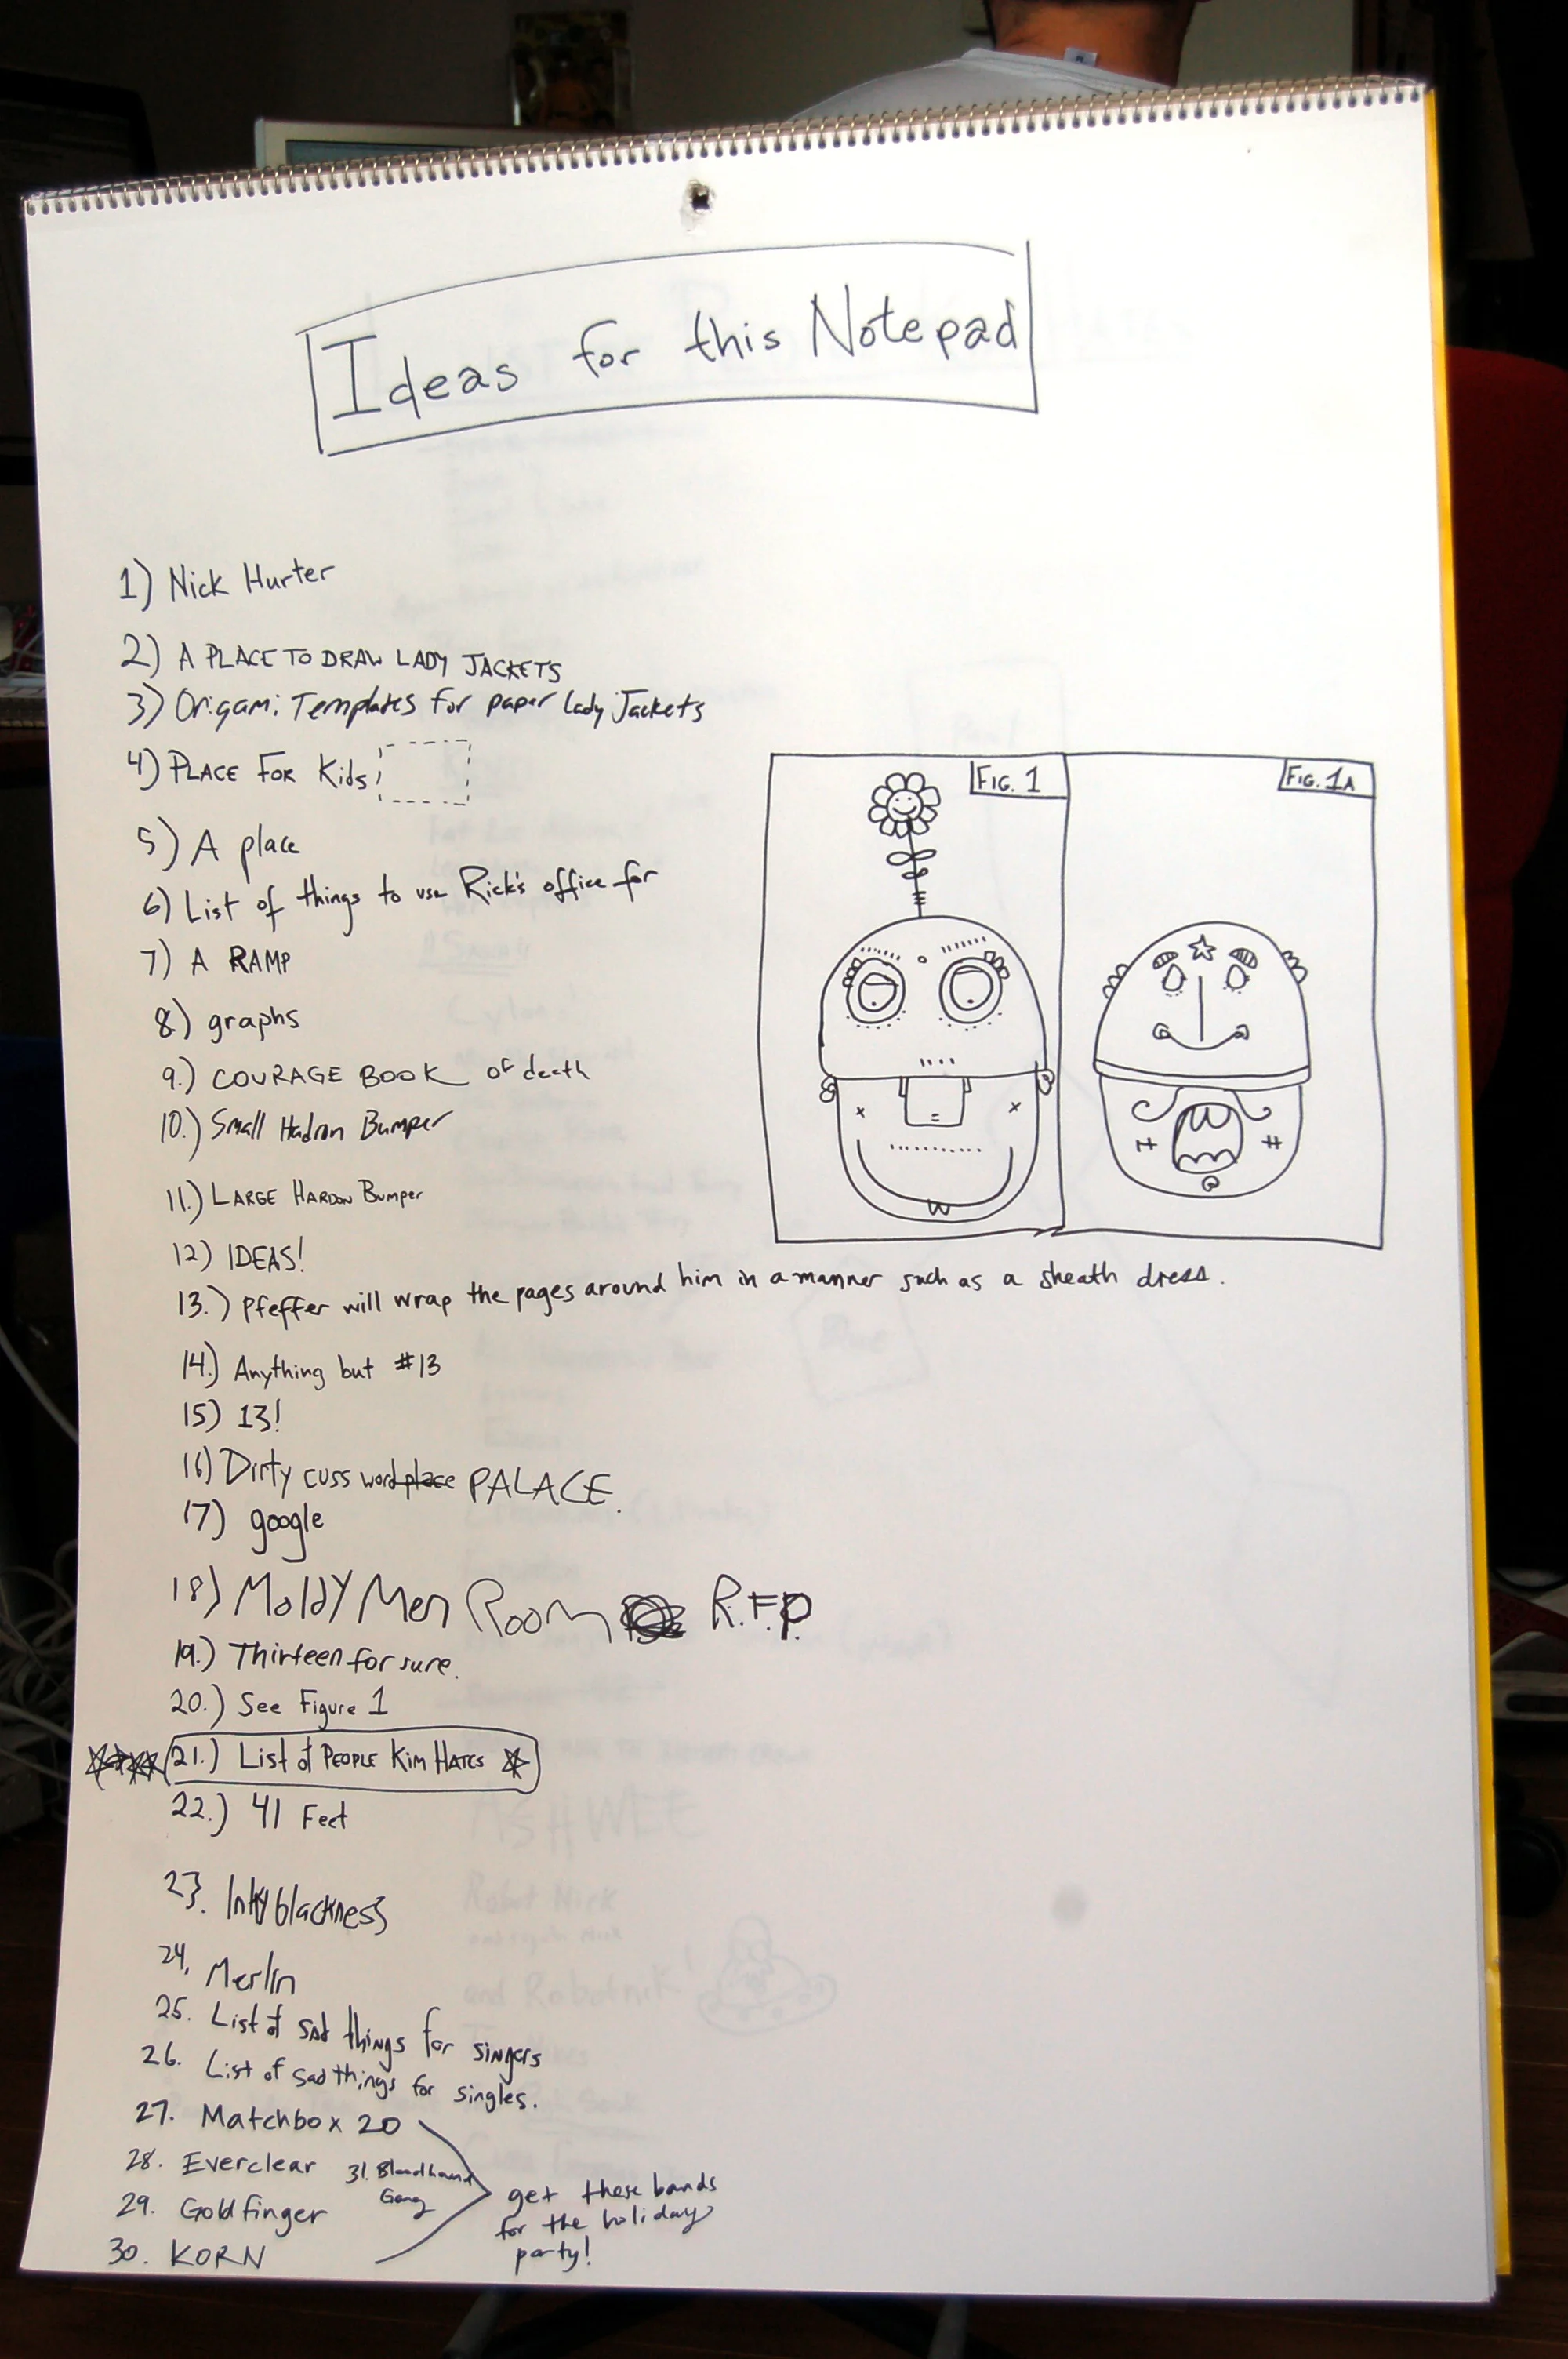 Ideas for this Notepad
1) Nick Hurter
2) A PLACE TO DRAW LADY JACKETS
3) Origami Templates for paper lady Jackets
4) PLACE FOR Kids
5) A place
6) List of things to use Rick's office for
7) A RAMP
8.) graphs
9.) COURAGE BOOK of death
10.) Small Hadron Bumper
11.) LARGE HARDON Bumper
12) IDEAS!
13.) Pfeffer will wrap the pages around him in a manner such as a sheath dress.
14.) Anything but #13
15) 13!
16) Dirty cuss word place PALACE.
17) google
18) Moldy Men Room R.F.P.
19.) Thirteen for sure.
20.) See Figure 1
21.) List of PEOPLE KIM HATES
22.) 41 Feet
23. Inky blackness
24. Merlin
25. List of sad things for singers
26. List of sad things for singles.
27. Matchbox 20
28. Everclear
29. Goldfinger
30. KORN
31. Bloodhound
Gang
get these bands
for the holiday
party!
FIG. 1
FIG. 1A